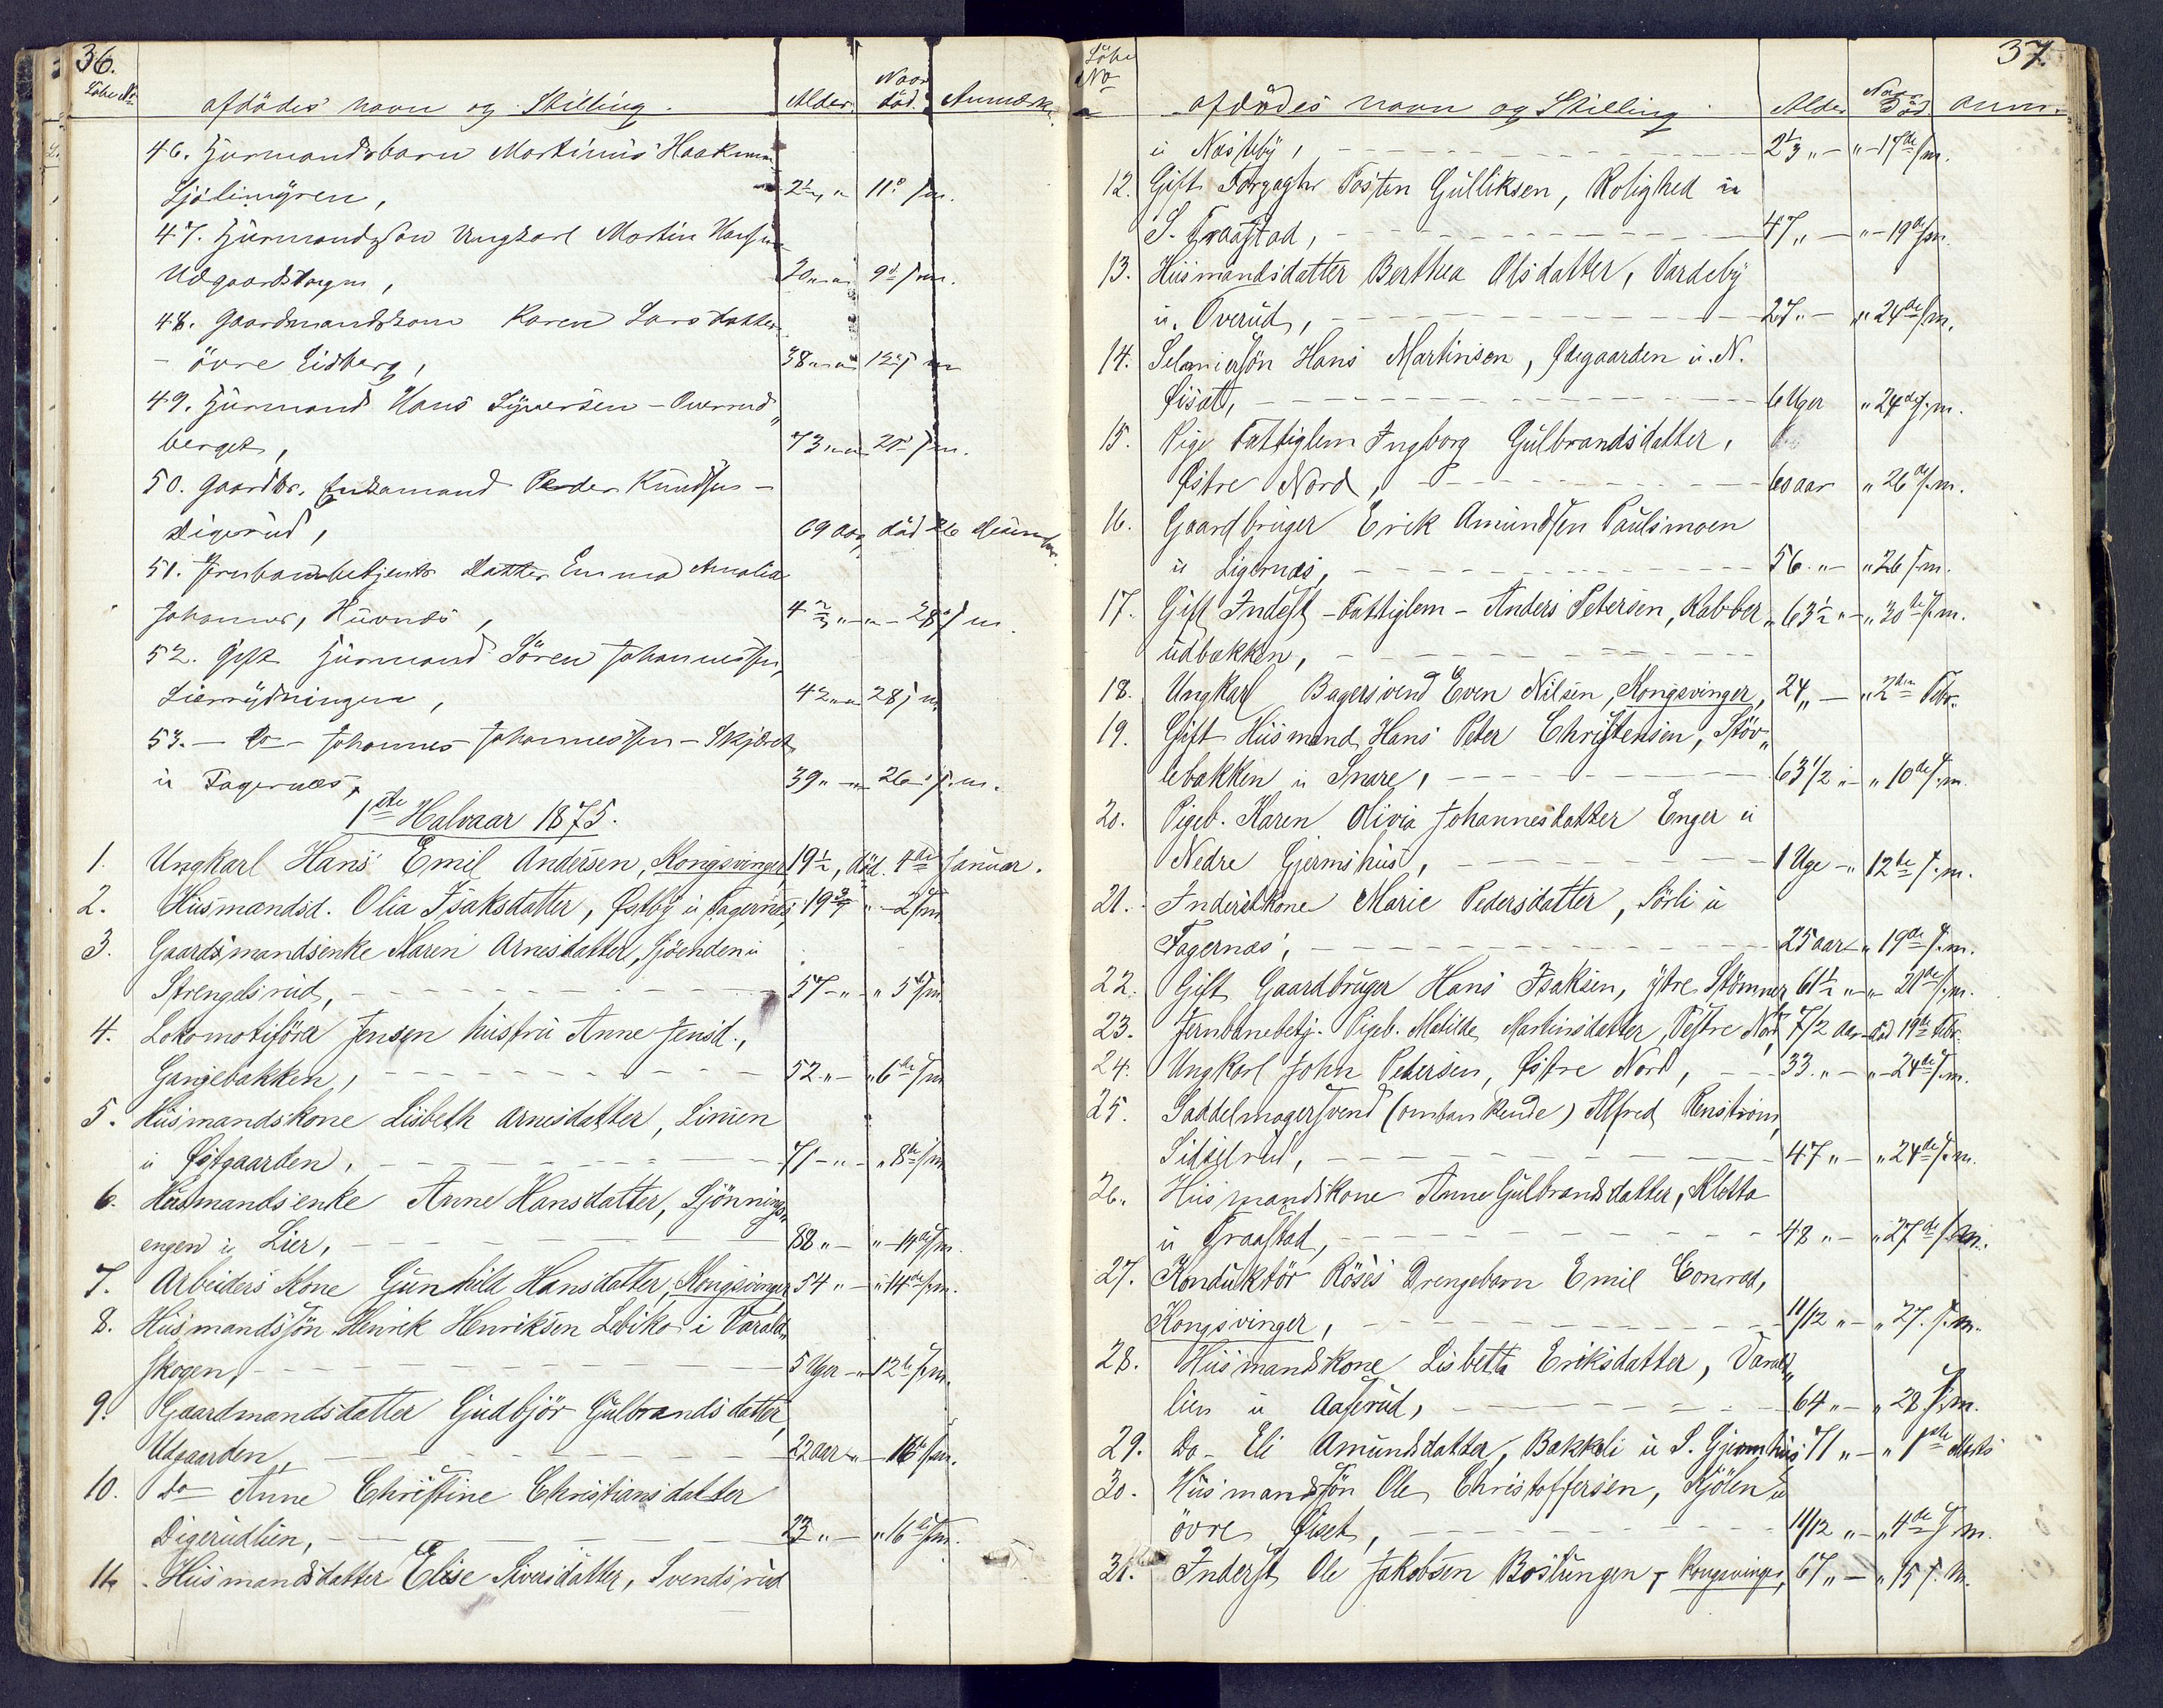 36.
Løbe No
afdødes navn og Stilling. Alder. Naar død. Anmærk.
46. Husmandsbarn Martinius Haakens
11 s. m.
47. Husmandssøn Ungkarl Martin Hansen
20 " " 9de s. m.
48. Gaardmandskone Karen Larsdatter
- øvre Eidberg, 38 " " 12 s. m.
49. Husmand Hans Syversen - Overud„
berget, 73 " " 21 s. m.
50. Gaardbr. Enkemand Peder Knudsen -
Digerud, 69 aar, død 26 December
51. Jernbanebetjents datter Emma Amalia
4 " - " - 28 s. m.
52. Gift Husmand Søren Johannessen,
Lierrydningen, 42 " " 28 s. m.
53. - Do - Johannes Johannessen - Skjæret
u Fagernæs, 39 " - " 26 s. m.
1ste Halvaar 1875.
1. Ungkarl Hans Emil Andersen, Kongsvinger, 19 1/2, død. 4de Januar.
2. Husmandsd. Olia Isaksdatter, Østby u Fagernæs, 19 " - 2 s. m.
3. Gaardsmandsenke Maren Arnesdatter, Sjøenden u
Strengelsrud, 57 - " - " 5de s. m.
4. Lokomotiförer Jensen hustru Anne Jensd.,
Gangebakken, 52 " - " 6de s. m.
5. Husmandskone Lisbeth Arnesdatter, Linnen
u Østgaarden, 71 - " - " 8de s. m.
6. Husmandsenke Anne Hansdatter, Sjönnings„
engen u Lier, 88 " - " - 14de s. m.
7. Arbeiders Kone Gunhild Hansdatter, Kongsvinger 54 " - " 14de s. m.
8. Husmandssøn Henrik Henriksen Lebiko i Varalds„
skogen, 5 Uger - " 12te s. m.
9. Gaardmandsdatter Gudbjör Gulbrandsdatter,
Udgaarden, 22 aar " - 16de s. m.
10. Do Anne Christine Christiansdatter
Digerudlien, 23 " - " 16de s. m.
11. Husmandsdatter Elise Siversdatter, Svendsrud
37.
Løbe No
afdødes navn og Stilling. Alder Naar Død. anm.
u Næsteby, 2 1/3 " - " - 17de s. m.
12. Gift Forgagtr Tosten Gulliksen, Rolighed u
S. Fraastad, 47 " - " - 19de s. m.
13. Husmandsdatter Berthea Olsdatter, Vardeby
u. Overud, 27 " - " 24de s. m.
14. Hans Martinsen, Ødegaarden u. N.
6 Uger " 24de s. m.
15. Pige Fattiglem Ingborg Gulbrandsdatter,
Østre Nord, 60 aar " 26de s. m.
16. Gaardbruger Erik Amundsen Paulsmoen
u Ligernæs, 56 " - " 26 s. m.
17. Gift Inderst - Fattiglem - Anders Petersen, Rabber„ 63 1/2 " - " 30te s. m.
udbakken,
18. Ungkarl Bagersvend Even Nilsen, Kongsvinger, 24 " - " 2den Febr.
19. Gift Husmand Hans Peter Christensen, Støv„
lebakken u Snare, 63 1/2 " - " 10de s. m.
20. Pigeb. Karen Olivia Johannesdatter Enger u
Nedre Gjermshus, 1 Uge - " 12te s. m.
21. Inderstkone Marie Pedersdatter, Sörli u
Fagernæs, 25 aar - " 19de s. m.
22. Gift Gaardbruger Hans Isaksen, ystre Stömner 61 1/2 " - " 21de s. m.
23. Jernbanebetj. Pigeb. Matilde Martinsdatter, Vestre Nord, 7/2 aar - død 19de Febr.
24. Ungkarl John Petersen, Østre Nord, 33 " - " - 24de s. m.
25. Saddelmagersvend (ombankende) Alfred Renström,
Sidsilrud, 47 " - " 24de s. m.
26. Husmandskone Anne Gulbrandsdatter, Kletta
u Fraastad, 48 " - " 27de s. m.
27. Konduktör Röses Drengebarn Emil Conrad,
Kongsvinger, 11/12 " - " 27. s. m.
28. Husmandskone Lisbetta Eriksdatter, Varald„
lien u Aaserud, 64 " - " 28. s. m.
29. Do - Eli Amundsdatter, Bakkeli u S. Gjermshus 71 " - " 1ste Marts
30. Husmandssön Ole Christoffersen, Kjölen u
övre Øiset, 11/12 " - " 4de s. m.
31. Inderst Ole Jakobsen Böslungen, Kongsvinger, 67 " - " 15 s. m.